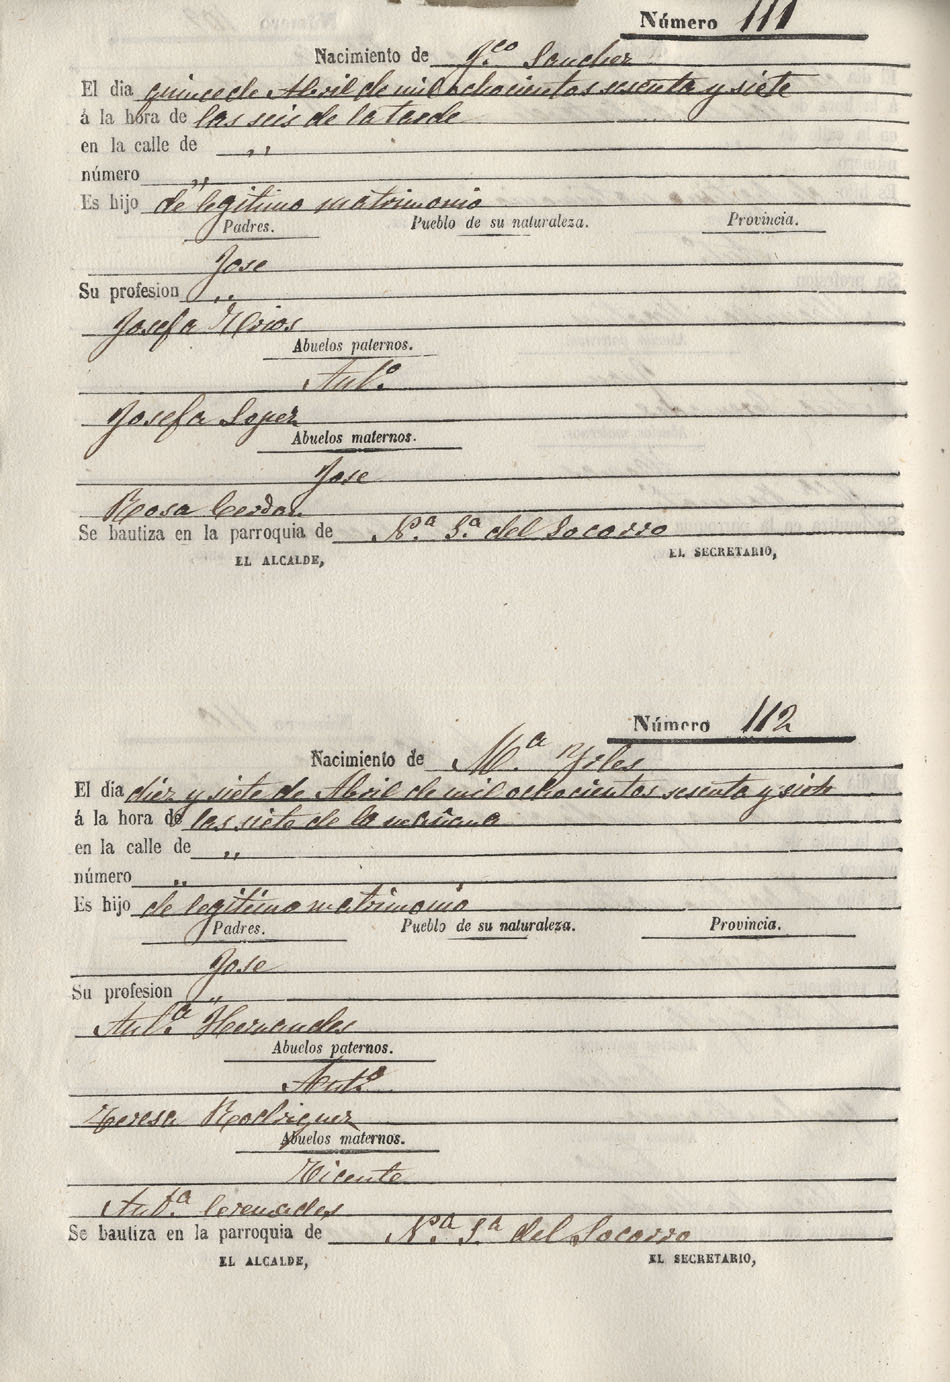 Número 111
Nacimiento de Fco Sanchez
El dia quince de Abril de mil ochocientos sesenta y siete
á la hora de las seis de la tarde
en la calle de ,,
número ,,
Es hijo de legitimo matrimonio
Padres. Pueblo de su naturaleza. Provincia.
Jose
Su profesion ,,
Josefa
Abuelos paternos.
Anto
Josefa Lopez
Abuelos maternos.
Jose
Rosa Cerdan
Se bautiza en la parroquia de Na Sa del Socorro
EL ALCALDE, EL SECRETARIO,
Número 112
Nacimiento de Ma Yiles
El dia diez y siete de Abril de mil ochocientos sesenta y siete
á la hora de las siete de la mañana
en la calle de ,,
número ,,
Es hijo de legitimo matrimonio
Padres. Pueblo de su naturaleza. Provincia.
Jose
Su profesion ,,
Anta Hernandes
Abuelos paternos.
Anto
Teresa Rodriguez
Abuelos maternos.
Vicente
Anta
Se bautiza en la parroquia de Na Sa del Socorro
EL ALCALDE, EL SECRETARIO,